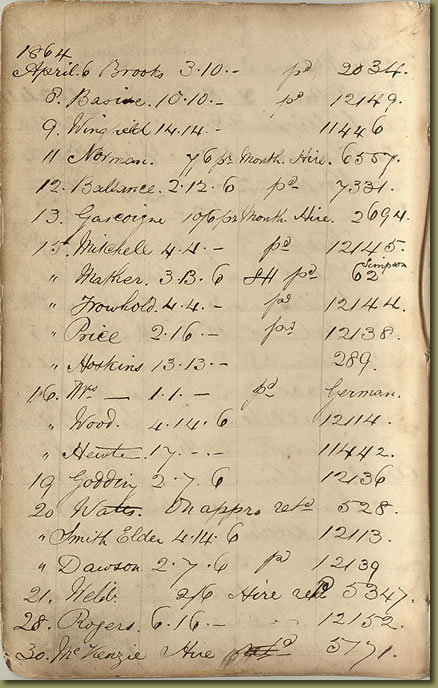 1864
April 6 Brooks 3.10.- pd 2034.
8. Basine. 10.10.- pd 12149.
9. Wingfield 14.14.- 11446
11 Norman. 7/6 pr Month. Hire. 6557.
12. Ballance. 2.12.6 pd 7331.
13. Gascoigne 10/6 pr Month. Hire. 2694.
15. Mitchell 4.4.- pd 12145.
Simpson
" Mather. 3.13.6 SH pd 62
" Frowhold. 4.4.- pd 12144.
" Price 2.16.- pd 12138.
" Hoskins 13.13.- 289.
16. Mrs — 1.1.- pd German.
" Wood. 4.14.6 12114.
" 17.-.- 11442.
19 Godding 2.7.6 12136
20 Watts. On appro retd 528.
" Smith Elder 4.14.6 12113.
" Dawson. 2.7.6 pd 12139
21. Webb. 2/6 Hire retd 5347.
28. Rogers. 6.16.- 12152.
30. McKenzie Hire 5171.